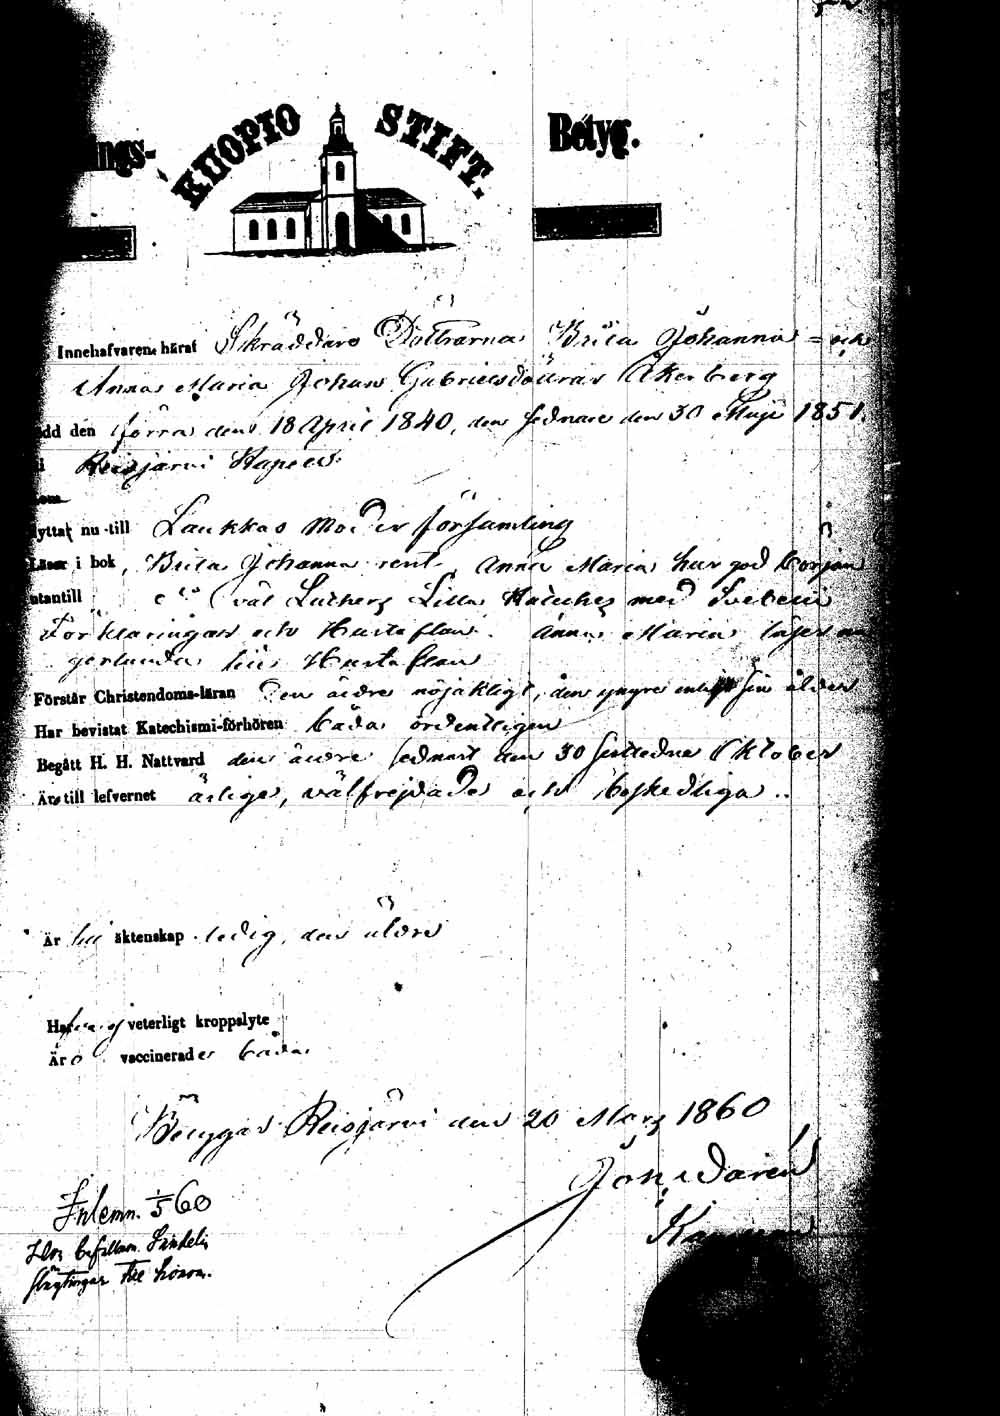 ngs- KUOPIO STIFT. Betyg.
Innehafvaren häraf Skräddare Döttrarna Brita Johanna och
Anna Maria Johans Gabrielsdöttrar Åkerberg
dd den förra den 18 April 1840, den sednare den 30 Maji 1851.
i Reisjärvi Kapell
om
yttar nu till Laukkas Moder församling
Läser i bok, Brita Johanna rent, Anna Maria har god början
utantill väl Luthers Lilla Katches med Svebelii
Förklaringar och Hustaflan. Anna Maria läser
Hustaflan
Förstår Christendoms-läran Den äldre nöjaktigt, den yngre enligt sin ålder
Har bevistat Katechismi-förhören båda ordentligen
Begått H. H. Nattvard den äldre sednast den 30 sistledne Oktober
Äro till lefvernet ärliga, välfrejdade och beskedliga ..
Är till äktenskap ledig, den äldre
Hafva ej veterligt kroppslyte
Äro vaccinerade båda
Betygar Reisjärvi den 20 Mars 1860
Joh. Darén
Inlemn. 1/5 60
till honom.